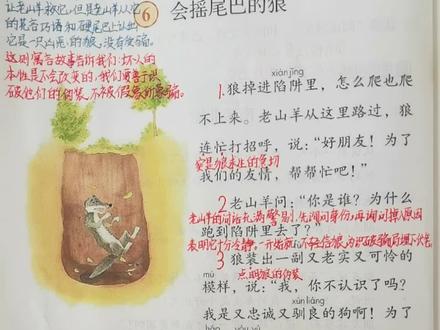 让老山羊救它,但是老山羊从它
的花言巧语和硬尾巴上认出
它是一只凶恶的狼,没有受骗。
这则寓言故事告诉我们:坏人的
本性是不会改变的,我们要善于识
破他们的伪装,不被假象所蒙骗。
6 会摇尾巴的狼
xiàn jǐng
1.狼掉进陷阱里,怎么爬也爬
不上来。老山羊从这里路过,狼
连忙打招呼,说:“好朋友!为了
我们的友情,帮帮忙吧!”
2 老山羊问:“你是谁?为什么
老山羊的问话充满警惕,先询问身份,再询问掉入原因
跑到陷阱里去了?”
表明它十分冷静,一开始就不轻信狼
3 狼装出一副又老实又可怜的
点明狼的伪装
mú
模样,说:“我,你不认识了吗?
xùn liáng
我是又忠诚又驯良的狗啊!为了